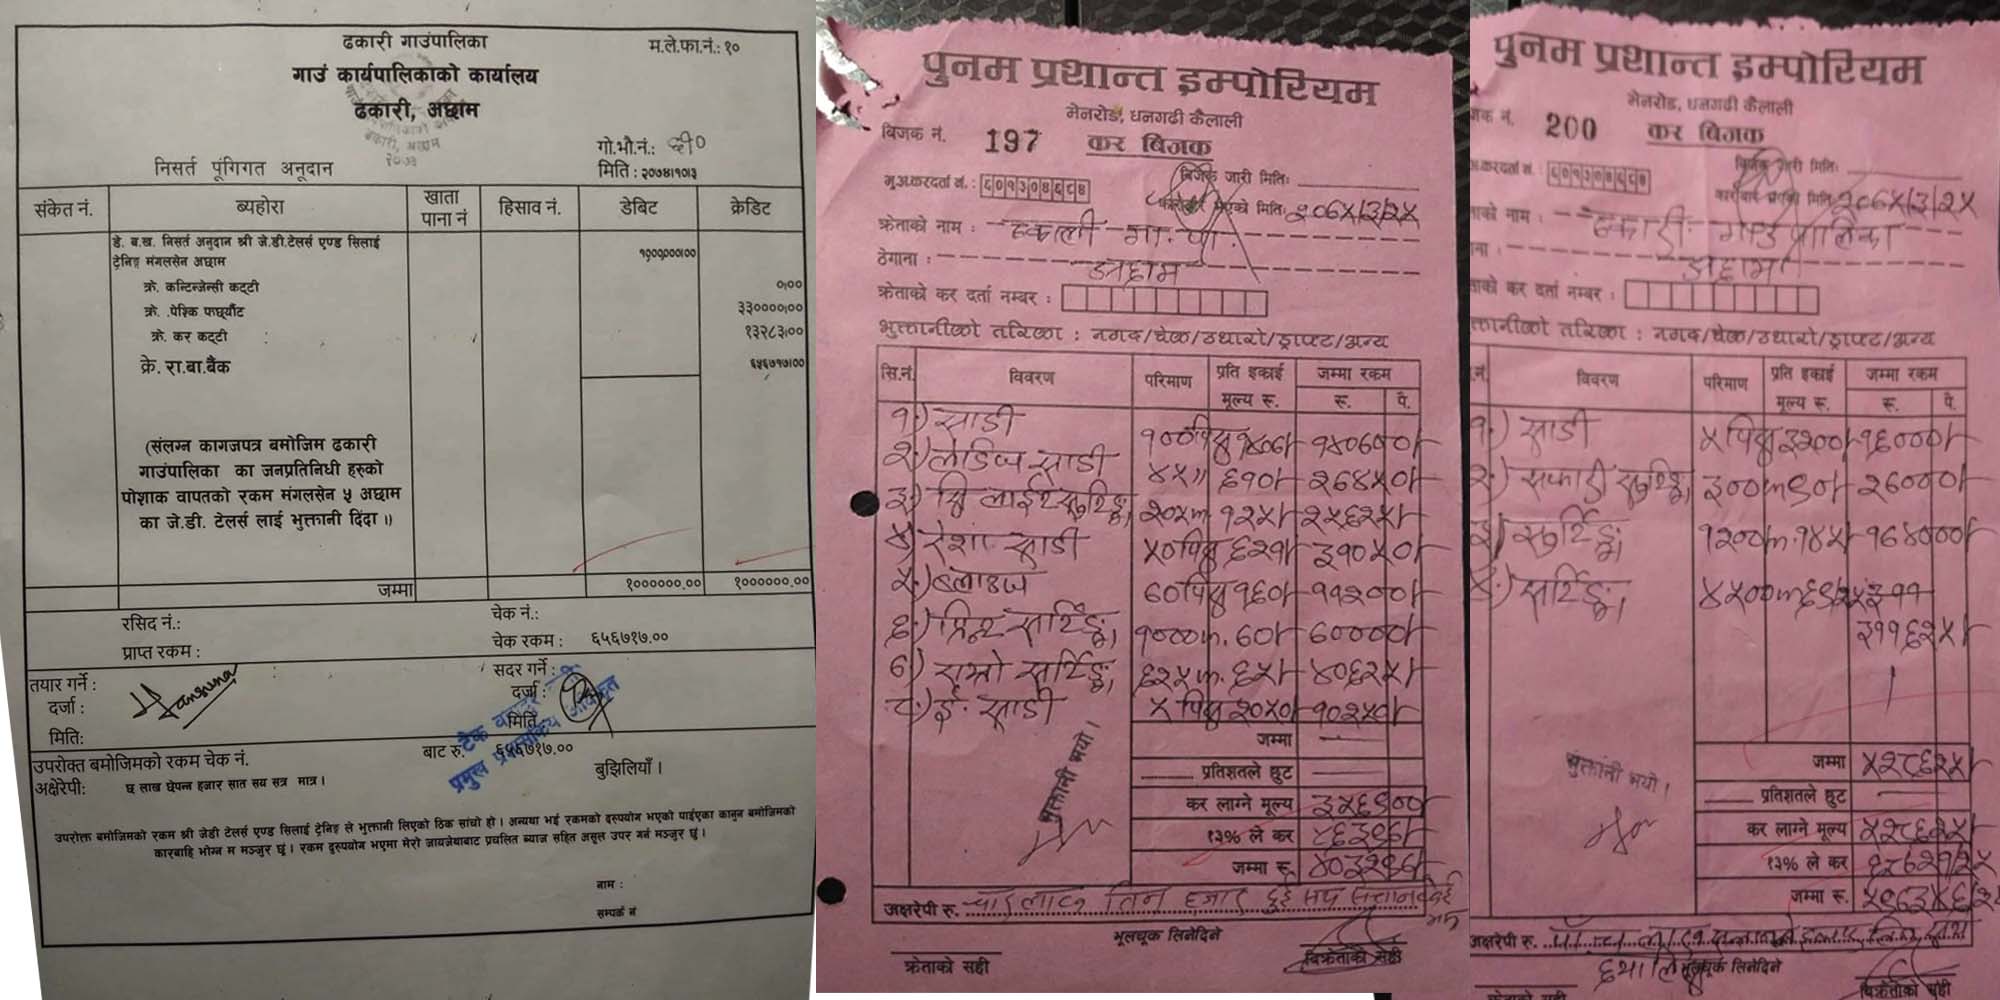 ढकारी गाउंपालिका
म.ले.फा.नं.: १०
गाउं कार्यपालिकाको कार्यालय
ढकारी, अछाम
गो.भौ.नं.:
निसर्त पूंगिगत अनूदान
मिति : २०७४।१०।३
संकेत नं. ब्यहोरा खाता पाना नं हिसाव नं. डेबिट क्रेडिट
डे. ब.ख. निसर्त अनुदान श्री जे.डी.टेलर्स एण्ड सिलाई
ट्रेनिङ्ग मंगलसेन अछाम १०००००००।००
क्रे. कन्टिन्जेन्सी कट्टी ०।००
क्रे. .पेश्कि फर्छ्यौट ३३००००।००
क्रे. कर कट्टी : १३२८३।००
क्रे. रा.बा.बैंक ६५६७१७।००
(संलग्न कागजपत्र बमोजिम ढकारी
गाउंपालिका का जनप्रतिनिधी हरुको
पोशाक वापतको रकम मंगलसेन ५ अछाम
का जे.डी. टेलर्स लाई भुक्तानी दिंदा ।)
जम्मा १००००००.०० १००००००.००
रसिद नं.: चेक नं.:
प्राप्त रकम : चेक रकम : ६५६७१७.००
तयार गर्ने : सदर गर्ने :
दर्जा : दर्जा :
मिति: मिति
प्रमुख प्रशासकिय अधिकृत
उपरोक्त बमोजिमको रकम चेक नं. बाट रु. ६५६७१७.०० बुझिलियाँ ।
अक्षेरेपी: छ लाख छपन्न हजार सात सय सत्र मात्र ।
उपरोक्त बमोजिमको रकम श्री जेडी टेलर्स एण्ड सिलाई ट्रेनिङ्ग ले भुक्तानी लिएको ठिक सांचो हो । अन्यथा भई रकमको दुरुपयोग भएको पाईएका कानुन बमोजिमको
कारबाहि भोग्न म मञ्जुर छुं । रकम दुरुपयोग भएमा मेरो जायजेथाबाट प्रचलित ब्याज सहित असूल उपर गर्न मञ्जुर छुं ।
नाम :
सम्पर्क नं
पुनम प्रशान्त इम्पोरियम
मेनरोड, धनगढी कैलाली
बिजक नं. 197 कर बिजक
बिजक जारी मितिः
मु.अ.करदर्ता नं. : ६०१३०४६८४
कारोबार भएको मितिः २०७४/३/२५
क्रेताको नाम : ढकाली गा. पा.
ठेगाना : अछाम
क्रेताको कर दर्ता नम्बर :
भुक्तानीको तरिका : नगद/चेक/उधारो/ड्राफ्ट/अन्य
सि.नं. विवरण परिमाण प्रति इकाई मूल्य रू. जम्मा रकम रू. पै.
१.) साडी १००पिस १४०७।- १४०७००।-
२.) लेडिज साडी ४५॥ ६१०।- २७४५०।-
३.) १२५।- २५६२५।-
४.) रेशा साडी ५०पिस ६२१।- ३१०५०।-
५.) ब्लाउज ७०पिस १६०।- ११२००।-
६.) प्रिन्ट सर्टिङ्ग १०००m. ७०।- ७००००।-
७.) सर्टिङ्ग ६२५m. ६५।- ४०६२५।-
८.) ई. साडी ५ पिस २०५०।- १०२५०।-
भुक्तानी भयो ।
जम्मा
प्रतिशतले छुट
कर लाग्ने मूल्य ३५६९००।-
१३% ले कर ४६३९७।-
जम्मा रू. ४०३२९७।-
अक्षरेपी रू. चार लाख तिन हजार दुई सय सन्तानब्बे
भूलचूक लिनेदिने
क्रेताको सही बिक्रेताको सही
पुनम प्रशान्त इम्पोरियम
मेनरोड, धनगढी कैलाली
जक नं. 200 कर बिजक
बिजक जारी मितिः
अ.करदर्ता नं. :
कारोबार भएको मितिः २०७४/३/२५
ताको नाम : ढकारी गाउँपालिका
ना : अछाम
ताको कर दर्ता नम्बर :
क्तानीको तरिका : नगद/चेक/उधारो/ड्राफ्ट/अन्य
.नं. विवरण परिमाण प्रति इकाई मूल्य रू. जम्मा रकम रू. पै.
१.) साडी ५ पिस ३२००।- १६०००।-
२.) सफारी सुटिङ्ग ३००m ९०।- २७०००।-
३.) सुटिङ्ग १२००m. १४५।- १७४०००।-
४.) सर्टिङ्ग ४५००m
३११६२५।-
भुक्तानी भयो ।
जम्मा ५२८६२५।-
प्रतिशतले छुट
कर लाग्ने मूल्य ५२८६२५।-
१३% ले कर ६८७२१/२५
जम्मा रू. ५९७३४६/२
अक्षरेपी रू. पाँच लाख
भूलचूक लिनेदिने
क्रेताको सही बिक्रेताको सही